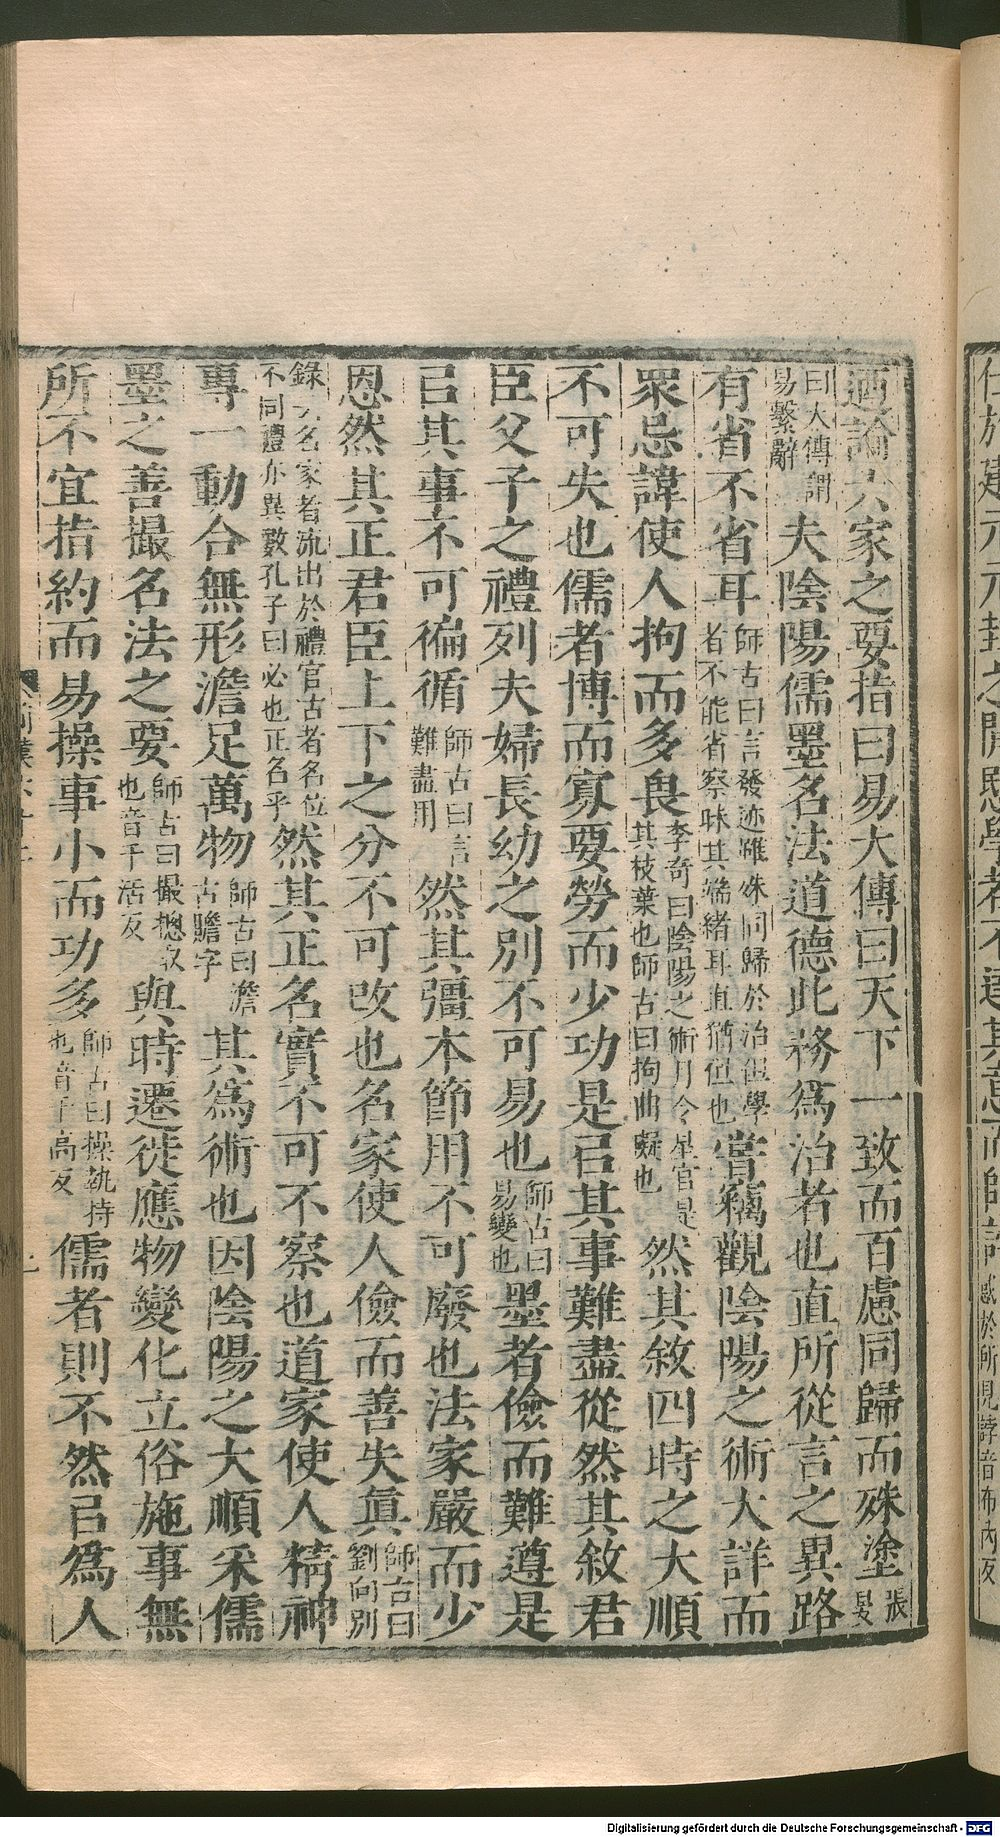 仕於建元元封之閒愍學者不達其意而師誖惑於所見誖音布內反
迺論六家之要指曰易大傳曰天下一致而百慮同歸而殊塗張晏
曰大傳謂易繫辭夫陰陽儒墨名法道德此務爲治者也直所從言之異路
有省不省耳師古曰言發迹雖殊同歸於治但學者不能省察昧其端緒耳直猶但也嘗竊觀陰陽之術大詳而
眾忌諱使人拘而多畏李奇曰陰陽之術月令星官是其枝葉也師古曰拘曲礙也然其敘四時之大順
不可失也儒者博而寡要勞而少功是㠯其事難盡從然其敘君
臣父子之禮列夫婦長幼之別不可易也師古曰易變也墨者儉而難遵是
㠯其事不可徧循師古曰言難盡用然其彊本節用不可廢也法家嚴而少
恩然其正君臣上下之分不可改也名家使人儉而善失眞師古曰劉向別
錄名家者流出於禮官古者名位不同禮亦異數孔子曰必也正名乎然其正名實不可不察也道家使人精神
專一動合無形澹足萬物師古曰澹古贍字其爲術也因陰陽之大順采儒
墨之善撮名法之要師古曰撮摠取也音千活反與時遷徙應物變化立俗施事無
所不宜指約而易操事小而功多師古曰操執持也音千高反儒者則不然㠯爲人